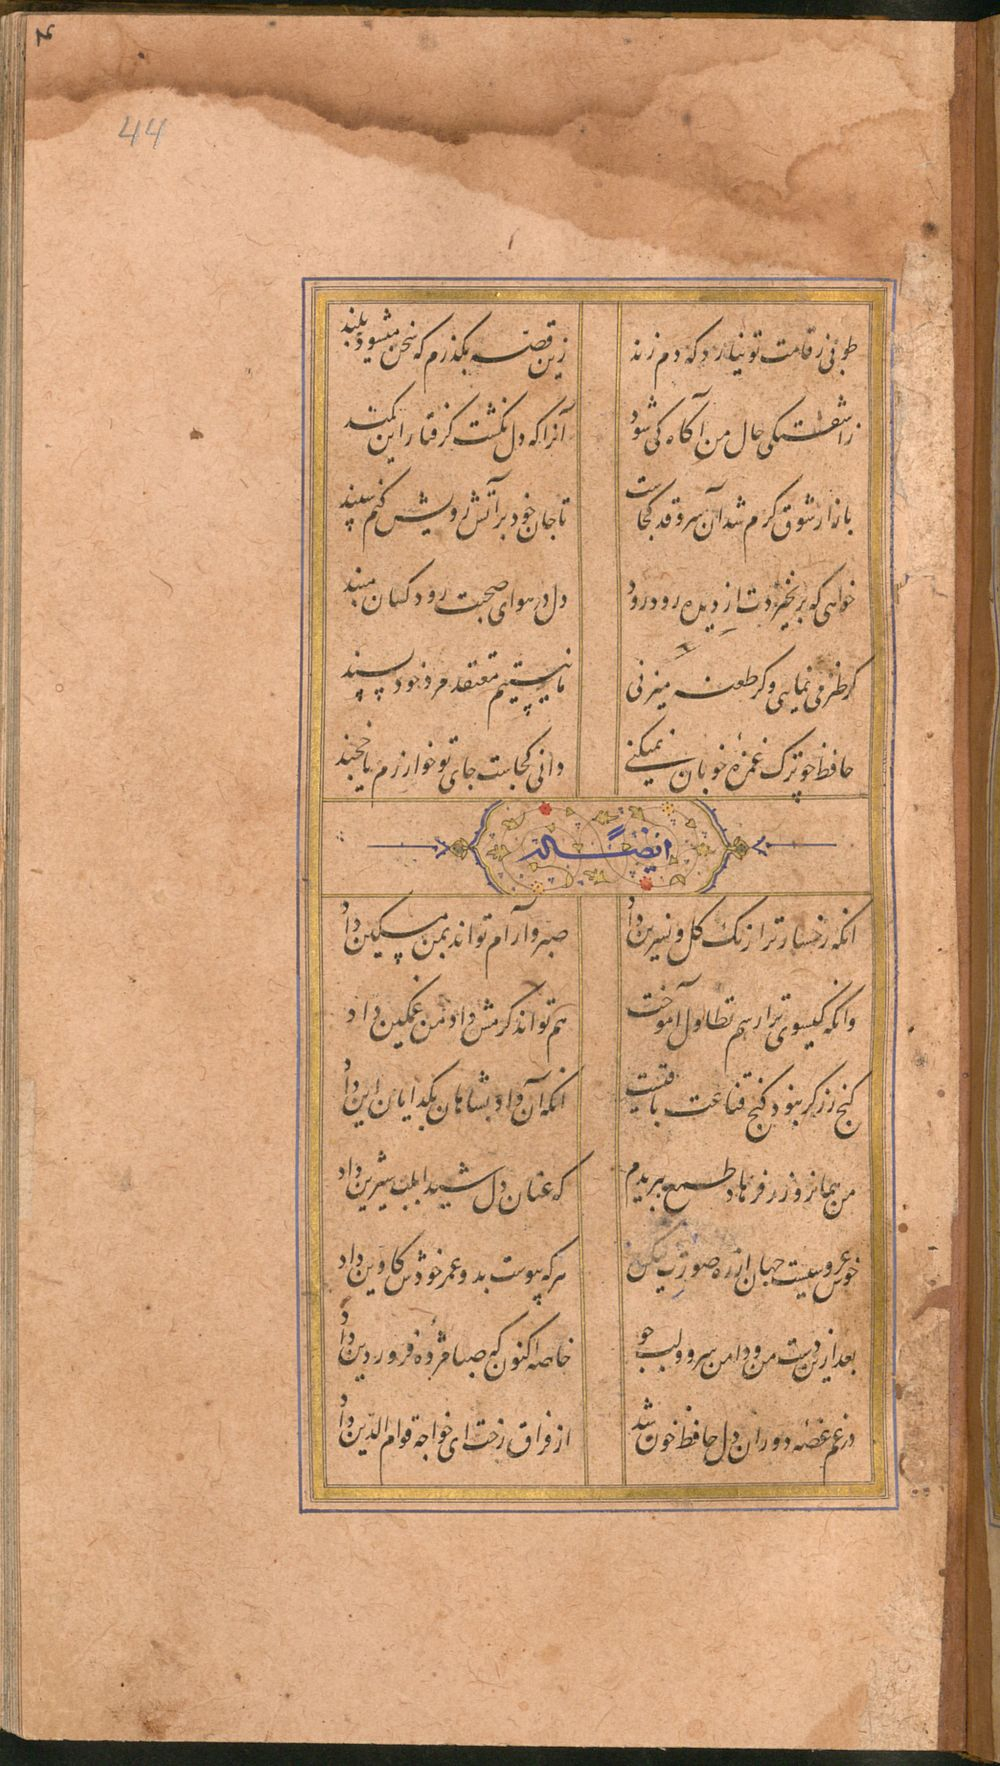 44
طوبی ز قامت تو نیارد که دم زند
زین قصه بگذرم که سخن میشود بلند
ز اشفتگی حال من آگاه کی شود
آنرا که دل نگشت گرفتار این کمند
بازار شوق گرم شد آن سرو قد کجاست
تا جان خود بر آتش رویش کنم سپند
خواهی که بر نخیزدت از دیده رود رود
دل در هوای صحبت رود کسان مبند
گر طنز می نمایی و گر طعنه میزنی
ما نیستیم معتقد مرد خودپسند
حافظ چو ترک غمزهٔ خوبان نمیکنی
دانی کجاست جای تو خوارزم یا خجند
ایضاً له
انکه رخسار ترا رنک گل و نسرین داد
صبر و آرام تواند بمن مسکین داد
وانکه گیسوی ترا رسم تطاول آموخت
هم تواند کرمش داد من غمگین داد
گنج زر گر نبود کنج قناعت باقیست
انکه آن داد بشاهان بگدایان این داد
من همانروز ز فرهاد طمع ببریدم
که عنان دل شیدا بلب شیرین داد
خوش عروسیست جهان از ره صورت لیکن
هر که پیوست بدو عمر خودش کاوین داد
بعد ازین دست من و دامن سرو و لب جو
خاصه اکنون که صبا مژدهٔ فروردین داد
در غم غصه دوران دل حافظ خون شد
از فراق رخت ای خواجه قوام الدین داد